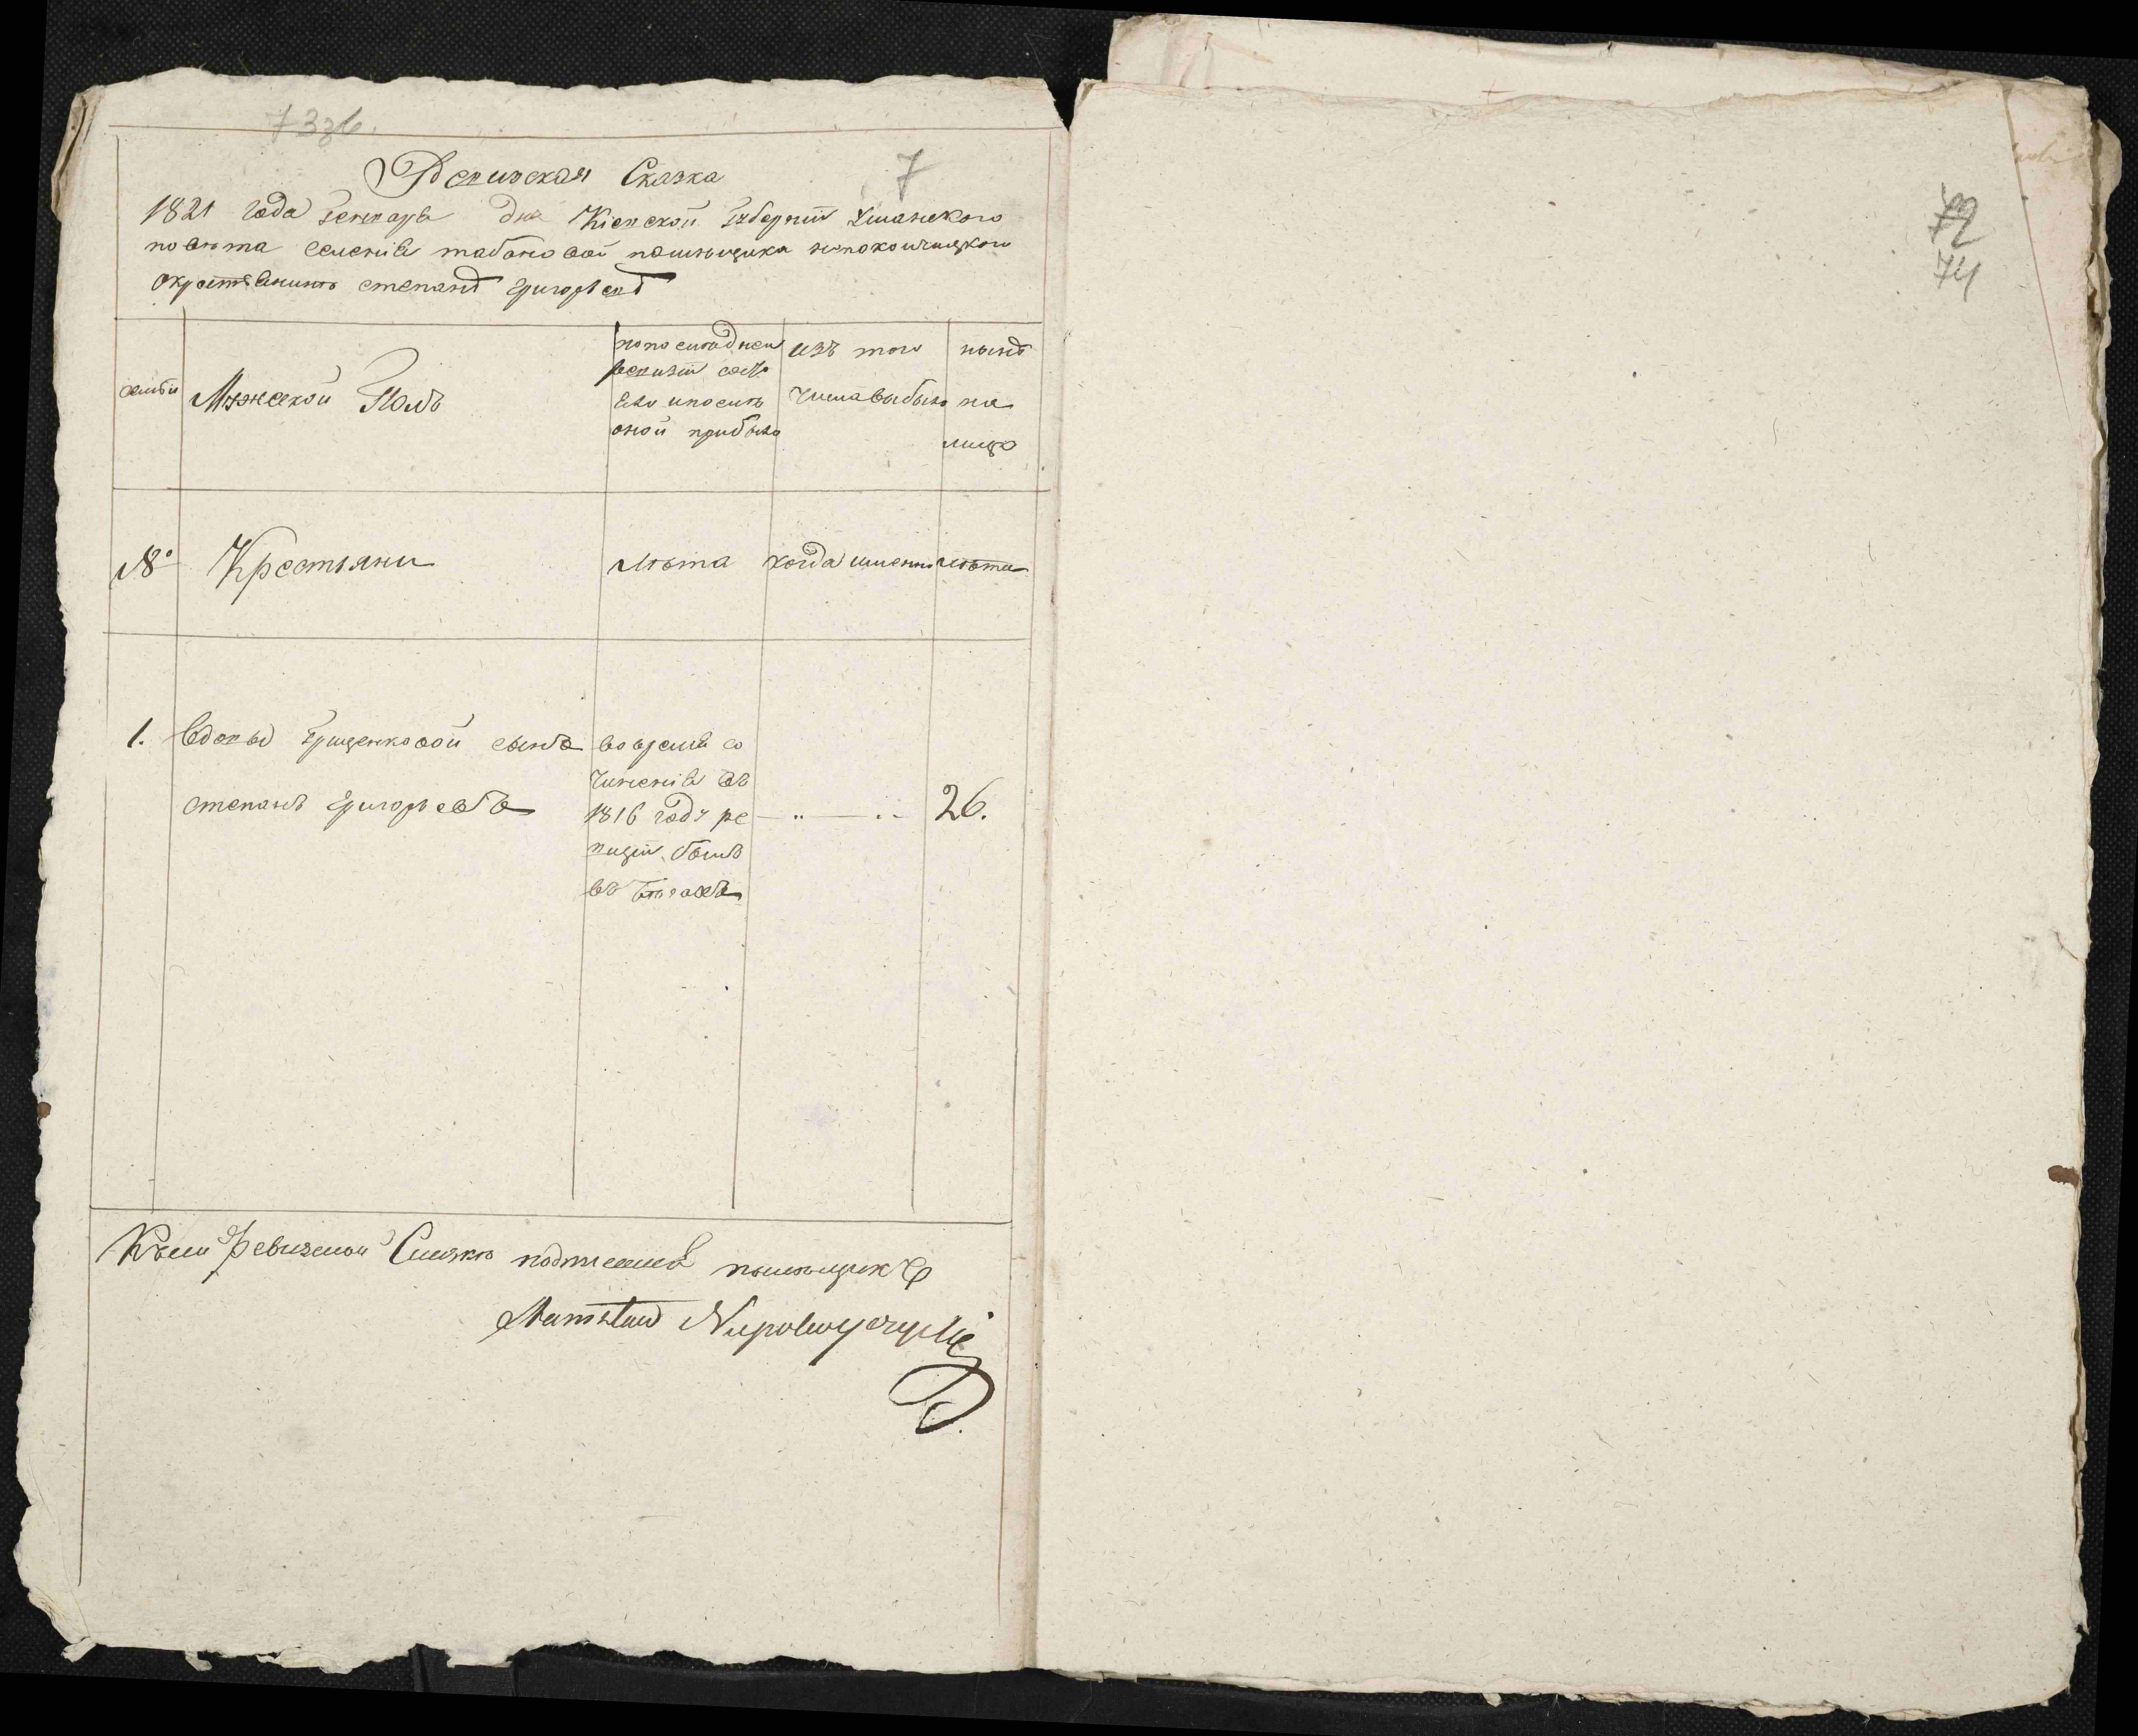 73зв.
7
Ревизская Сказка
1821 года Генваря дня Кіевской Губерніи Уманского
повѣта селенія табановой помѣщика
Окрестянинѣ степанѣ григорьевѣ
семьи
Мужеской Полъ
по последней
ревизіи состо
яло и послѣ
оной прибыло
изъ того
числа выбыло
нынѣ
на
лицо
№
Крестьяни
лѣта
когда именно
лѣта
1.
вдовы Грищенковой сынъ
степанъ григорьевъ
во время со
чиненія въ
1816 году ре
визіи былъ
въ бѣгахъ
26.
Къ сей Ревизской Скизке подписался помѣщикъ
72
74